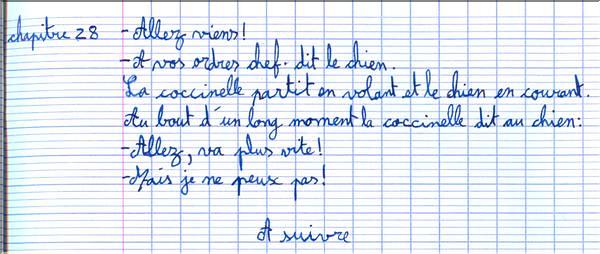 chapitre 28
- Allez viens!
- A vos ordres chef. dit le chien.
La coccinelle partit en volant et le chien en courant.
Au bout d'un long moment la coccinelle dit au chien:
- Allez, va plus vite!
- Mais je ne peux pas!
A suivre